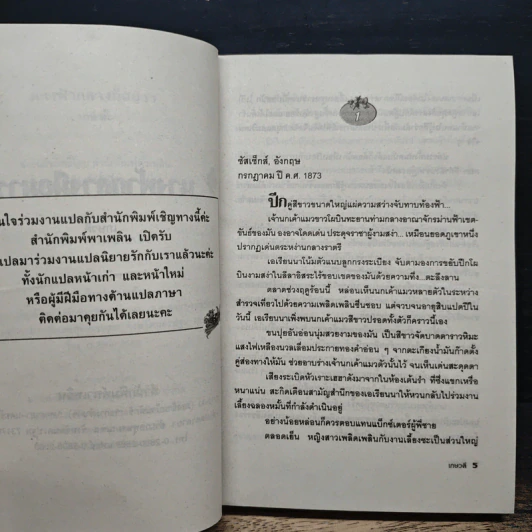 นใจร่วมงานแปลกับสำนักพิมพ์เชิญทางนี้ค่ะ
สำนักพิมพ์พาเพลิน เปิดรับ
แปลมาร่วมงานแปลนิยายรักกับเราแล้วนะคะ
ทั้งนักแปลหน้าเก่า และหน้าใหม่
หรือผู้มีฝีมือทางด้านแปลภาษา
ติดต่อมาคุยกันได้เลยนะคะ
1
ซัสเซ็กส์, อังกฤษ
กรกฎาคม ปี ค.ศ. 1873
ปีกคู่สีขาวขนาดใหญ่แผ่ความสว่างจับทาบท้องฟ้า...
เจ้านกเค้าแมวขาวโผบินทะยานท่ามกลางอาณาจักรม่านฟ้าเขต-
ขันธ์ของมัน องอาจโดดเด่น ประดุจราชาผู้งามสง่า... เหมือนยอดภูเขาหนึ่ง
ปรากฏเด่นตระหง่านกลางราตรี
เอเรียนนาโน้มตัวแนบลูกกรงระเบียง จับตามองการขยับปีกโผ
บินงามสง่าในลีลาอิสระไร้ขอบเขตของมันด้วยความทึ่ง...ตะลึงลาน
ตลาดช่วงฤดูร้อนนี้ หล่อนเห็นนกเค้าแมวหลายตัวในระหว่าง
สำรวจเที่ยวไปด้วยความเพลิดเพลินชื่นชอบ แต่จวบจนอายุสิบแปดปีใน
วันนี้ เอเรียนนาเพิ่งพบนกเค้าแมวสีขาวปรอดทั้งตัวก็คราวนี้เอง
ขนปุยอันอ่อนนุ่มสวยงามของมัน เป็นสีขาวจัดบาดตาราวหิมะ
แสงไฟเหลืองนวลเลื่อมประกายทองคำอ่อน ๆ จากตะเกียงน้ำมันก๊าดตั้ง
คู่ส่องทางให้มัน ช่วยอาบร่างเจ้านกเค้าแมวตัวนั้นไว้ จนเห็นเด่นสะดุดตา
เสียงระเบิดหัวเราะเฮฮาดังมาจากในห้องเต้นรำ ที่ซึ่งแขกเหรื่อ
หนาแน่น สะกิดเตือนสามัญสำนึกของเอเรียนนาให้หวนกลับไปร่วมงาน
เลี้ยงฉลองหมั้นที่กำลังดำเนินอยู่
อย่างน้อยหล่อนก็ควรตอบแทนแบ็กซ์เตอร์ผู้พี่ชาย
ตลอดเย็น หญิงสาวเพลิดเพลินกับงานเลี้ยงซะเป็นส่วนใหญ่
เกษวดี 5